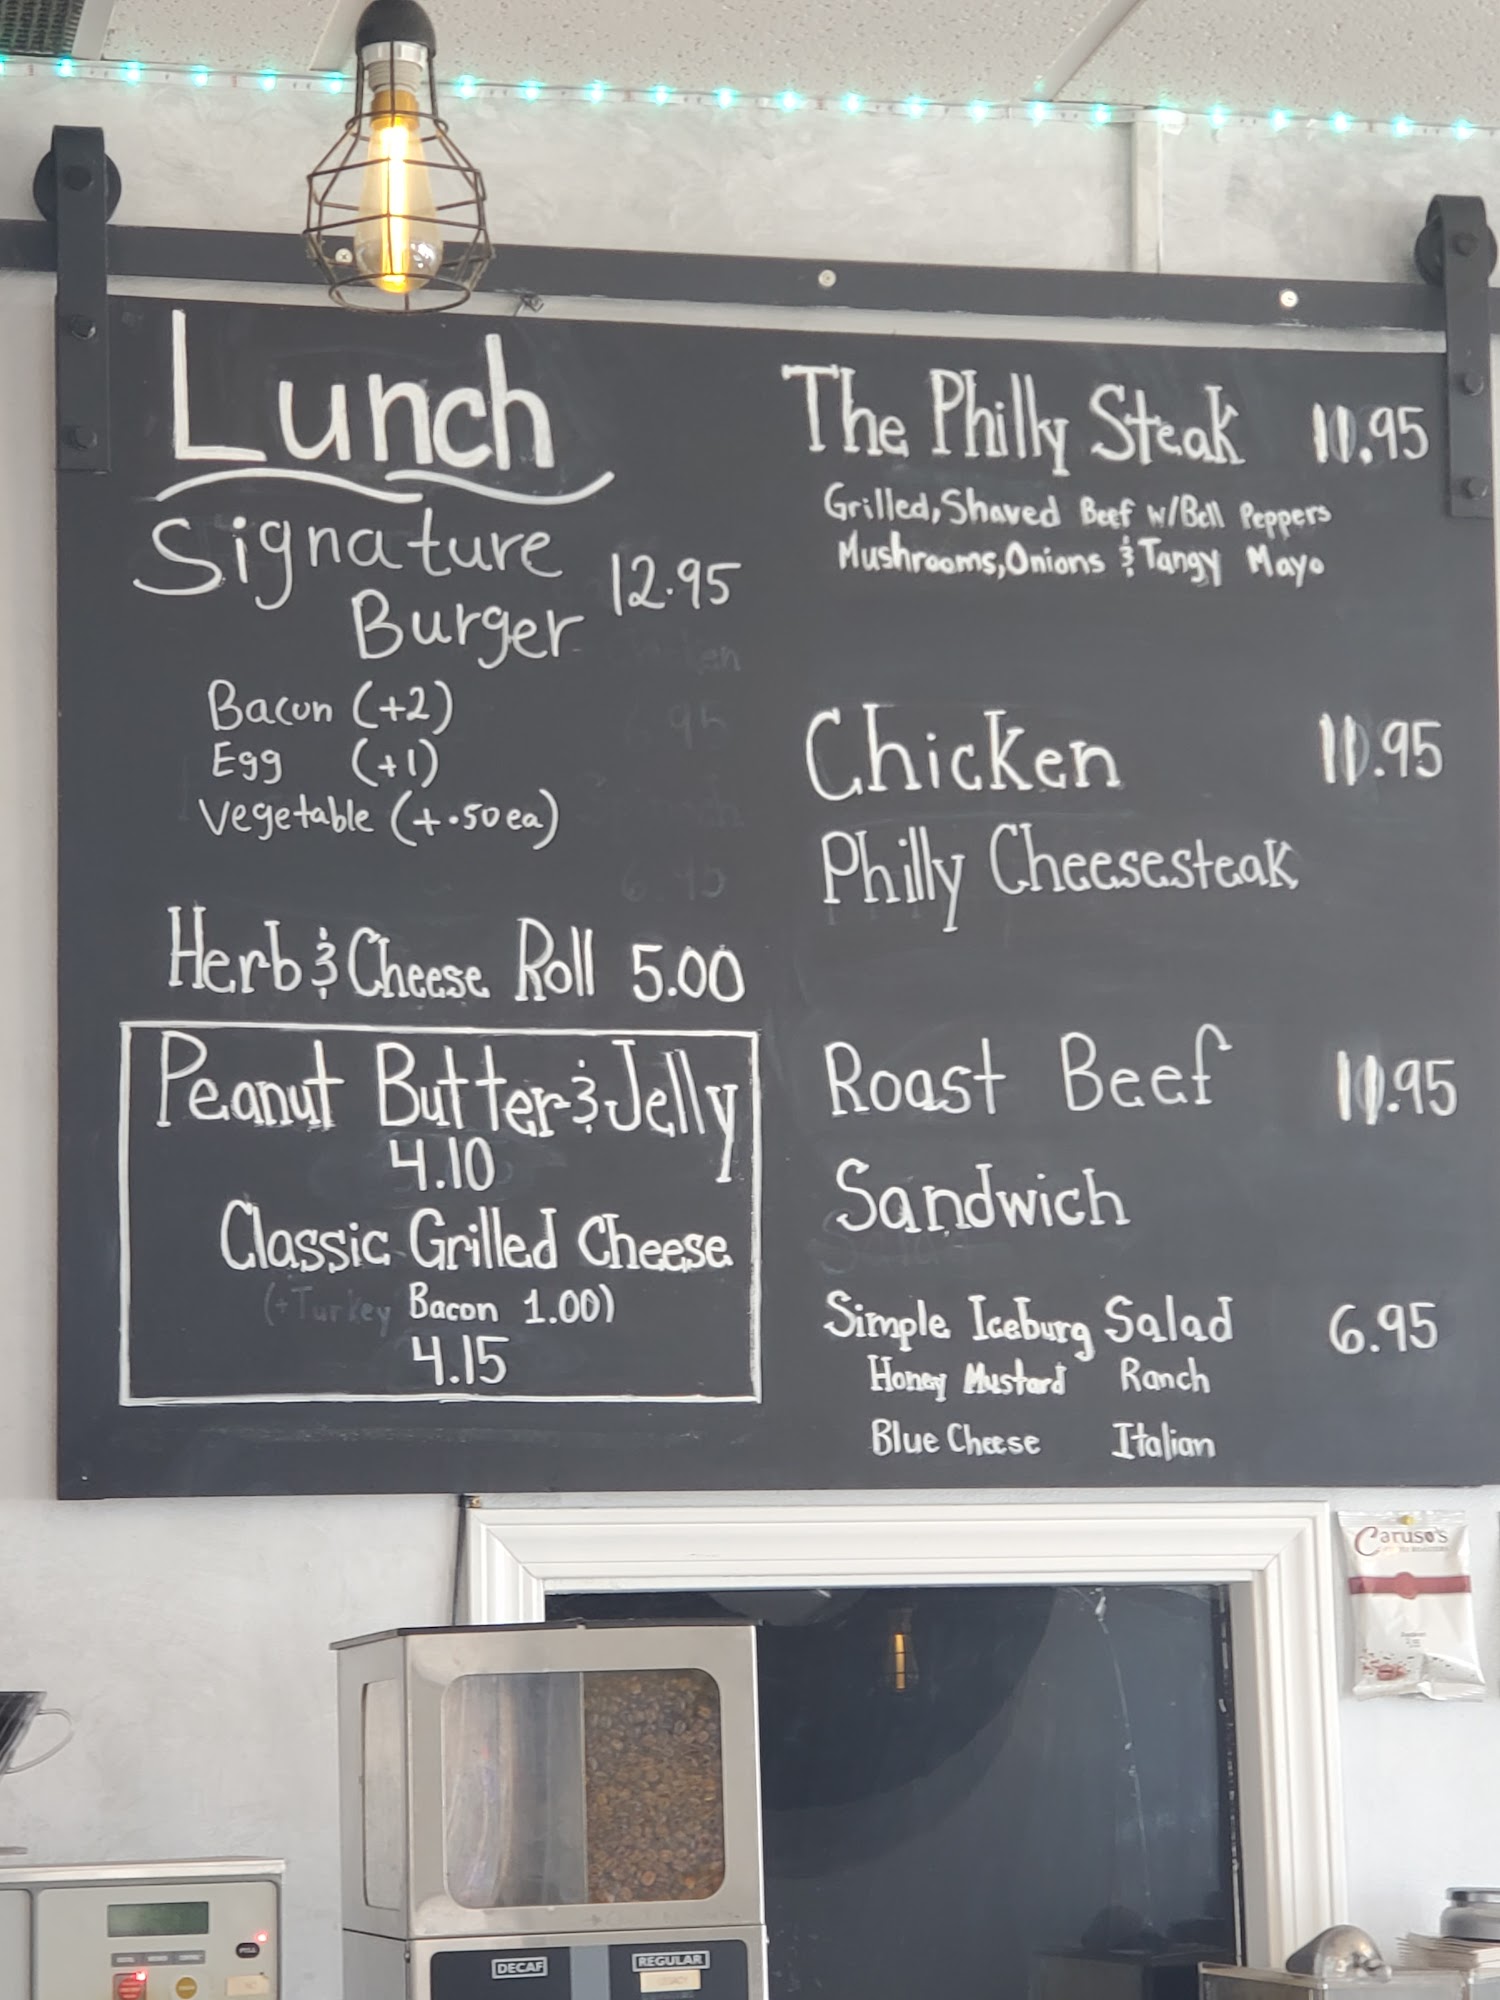 Lunch
Signature
Burger 12.95
Bacon (+2)
Egg (+1)
Vegetable (+.50ea)
Herb & Cheese Roll 5.00
Peanut Butter & Jelly
4.10
Classic Grilled Cheese
(+Turkey Bacon 1.00)
4.15
The Philly Steak 11.95
Grilled, Shaved Beef w/Bell Peppers
Mushrooms, Onions & Tangy Mayo
Chicken 11.95
Philly Cheesesteak
Roast Beef 11.95
Sandwich
Simple Iceburg Salad 6.95
Honey Mustard Ranch
Blue Cheese Italian
Caruso's
DECAF
REGULAR
LEGACY